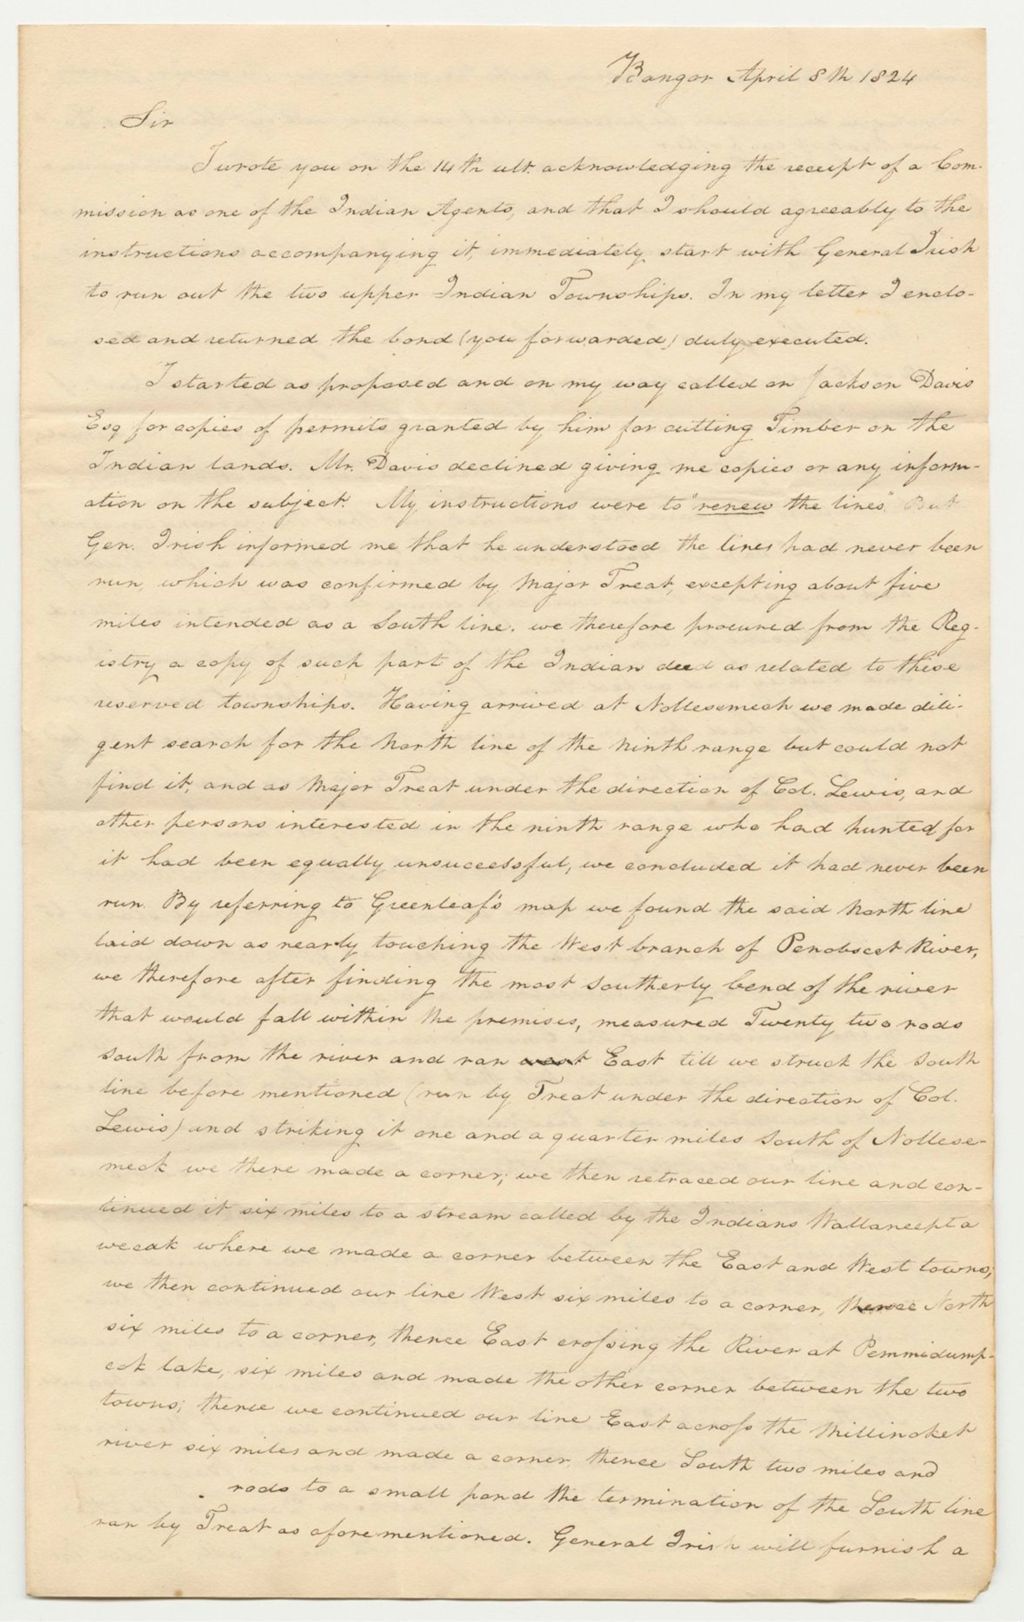 Bangor April 8th 1824
Sir
I wrote you on the 14th ult. acknowledging the receipt of a Com-
mission as one of the Indian Agents, and that I should agreeably to the
instructions accompanying it, immediately start with General Irish
to run out the two upper Indian Townships. In my letter I enclo-
sed and returned the bond (you forwarded) duly executed.
I started as proposed and on my way called on Jackson Davis
Esq for copies of permits granted by him for cutting Timber on the
Indian lands. Mr. Davis declined giving me copies or any inform-
ation on the subject. My instructions were to "renew the lines" But
Gen. Irish informed me that he understood the lines had never been
run which was confirmed by Major Treat, excepting about five
miles intended as a South line. we therefore procured from the Reg-
istry a copy of such part of the Indian deed as related to these
reserved townships. Having arrived at Nollesemeck we made dili-
gent search for the North line of the ninth range but could not
find it, and as Major Treat under the direction of Col. Lewis, and
other persons interested in the ninth range who had hunted for
it had been equally unsuccessful, we concluded it had never been
run. By referring to Greenleaf's map we found the said North line
laid down as nearly touching the West branch of Penobscot River,
we therefore after finding the most Southerly bend of the river
that would fall within the premises, measured Twenty two rods
South from the river and ran East till we struck the South
line before mentioned (run by Treat under the direction of Col.
Lewis) and striking it one and a quarter miles South of Nollese-
meck we there made a corner; we then retraced our line and con-
tinued it six miles to a stream called by the Indians Wallaneepta
weeak where we made a corner between the East and West towns;
we then continued our line West six miles to a corner, thence North
six miles to a corner, thence East crossing the River at Pemmidump-
cok lake, six miles and made the other corner between the two
towns; thence we continued our line East across the Millinoket
river six miles and made a corner, thence South two miles and
rods to a small pond the termination of the South line
ran by Treat as aforementioned. General Irish will furnish a